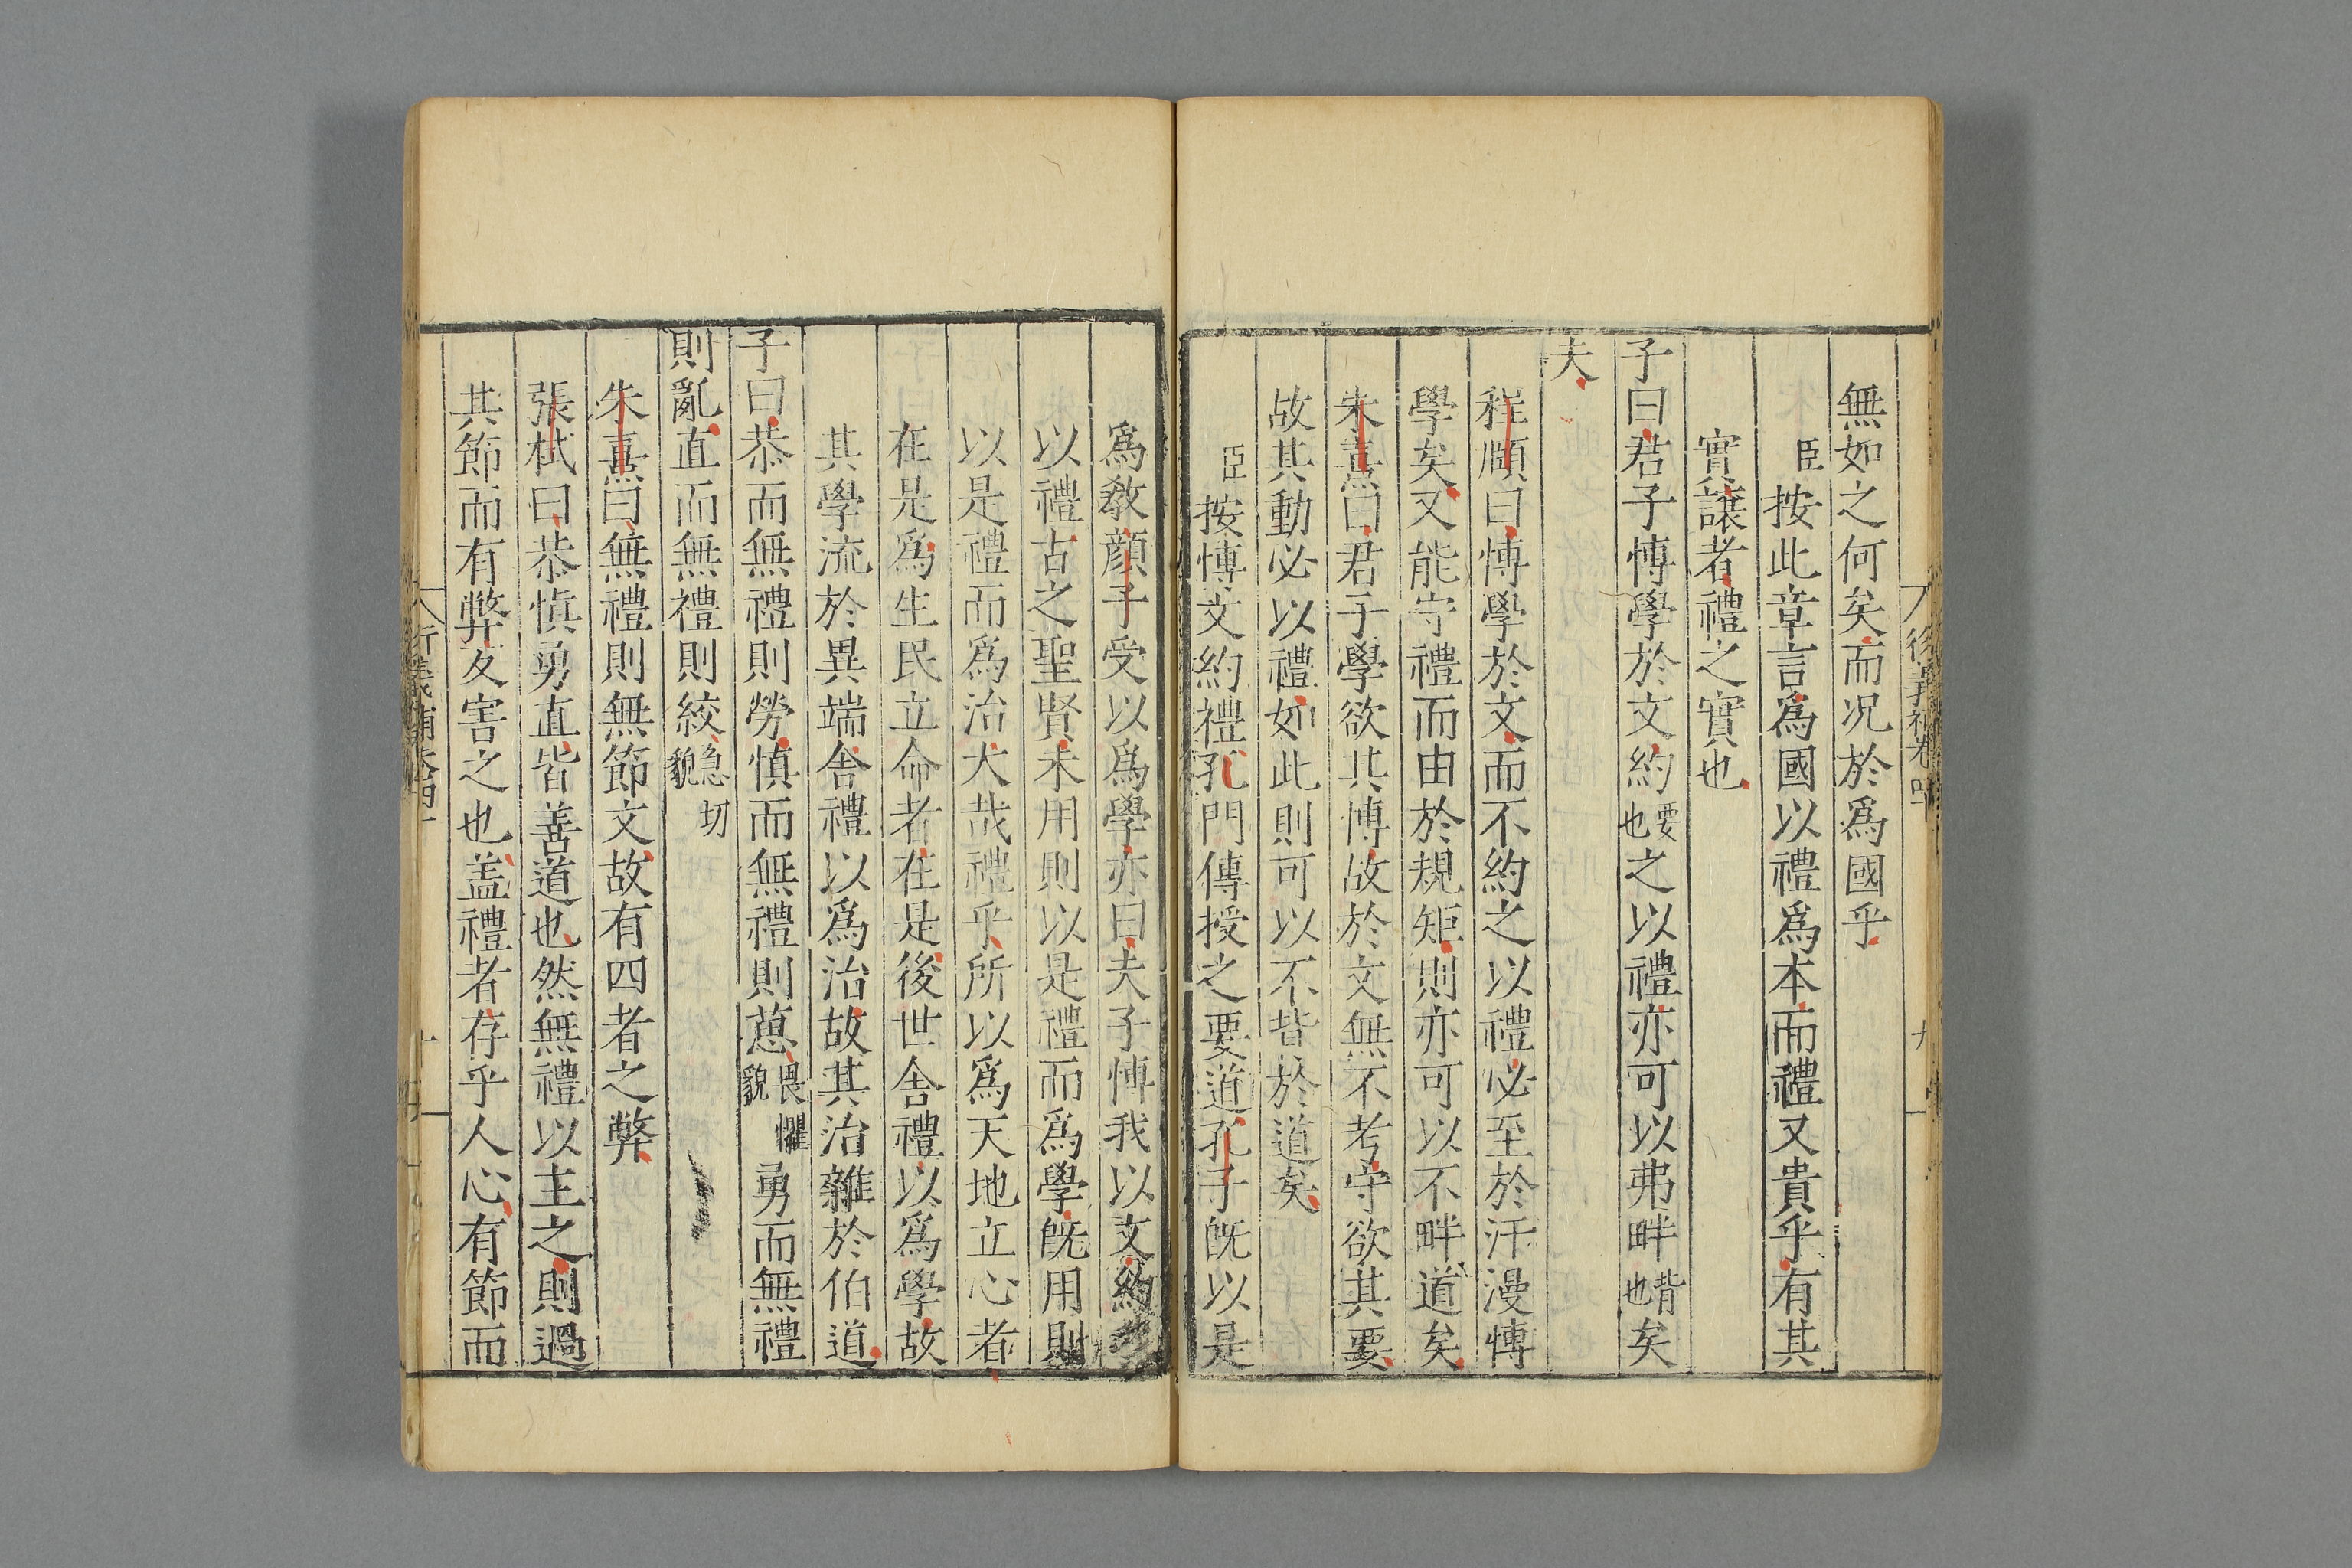 無如之何矣而况於爲國乎
臣按此章言爲國以禮爲本而禮又貴乎有其
實讓者禮之實也
子曰君子博學於文約要也之以禮亦可以弗畔背也矣
夫
程頤曰博學於文而不約之以禮必至於汗漫博
學矣又能守禮而由於規矩則亦可以不畔道矣
朱熹曰君子學欲其博故於文無不考守欲其要
故其動必以禮如此則可以不背於道矣
臣按博文約禮孔門傳授之要道孔子旣以是
爲敎顔子受以爲學亦曰夫子博我以文約
以禮古之聖賢未用則以是禮而爲學旣用則
以是禮而爲治大哉禮乎所以爲天地立心者
在是爲生民立命者在是後世舍禮以爲學故
其學流於異端舍禮以爲治故其治雜於伯道
子曰恭而無禮則勞愼而無禮則葸畏懼貌勇而無禮
則亂直而無禮則絞急切貌
朱熹曰無禮則無節文故有四者之弊
張栻曰恭愼勇直皆善道也然無禮以主之則過
其節而有弊反害之也盖禮者存乎人心有節而